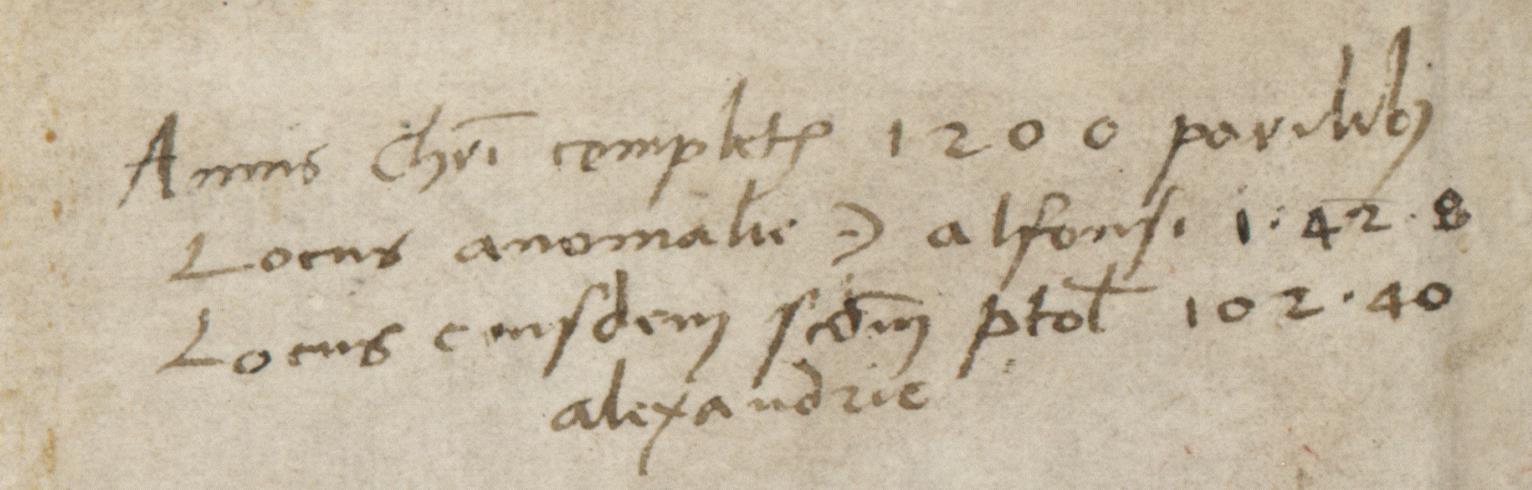 Annis Chrī completꝭ 1200 parilibꝫ
Locus anomalie ☽ alfonsi 1·42·8
Locus eiusdem scdm̄ ptol 102·40
alexandrie